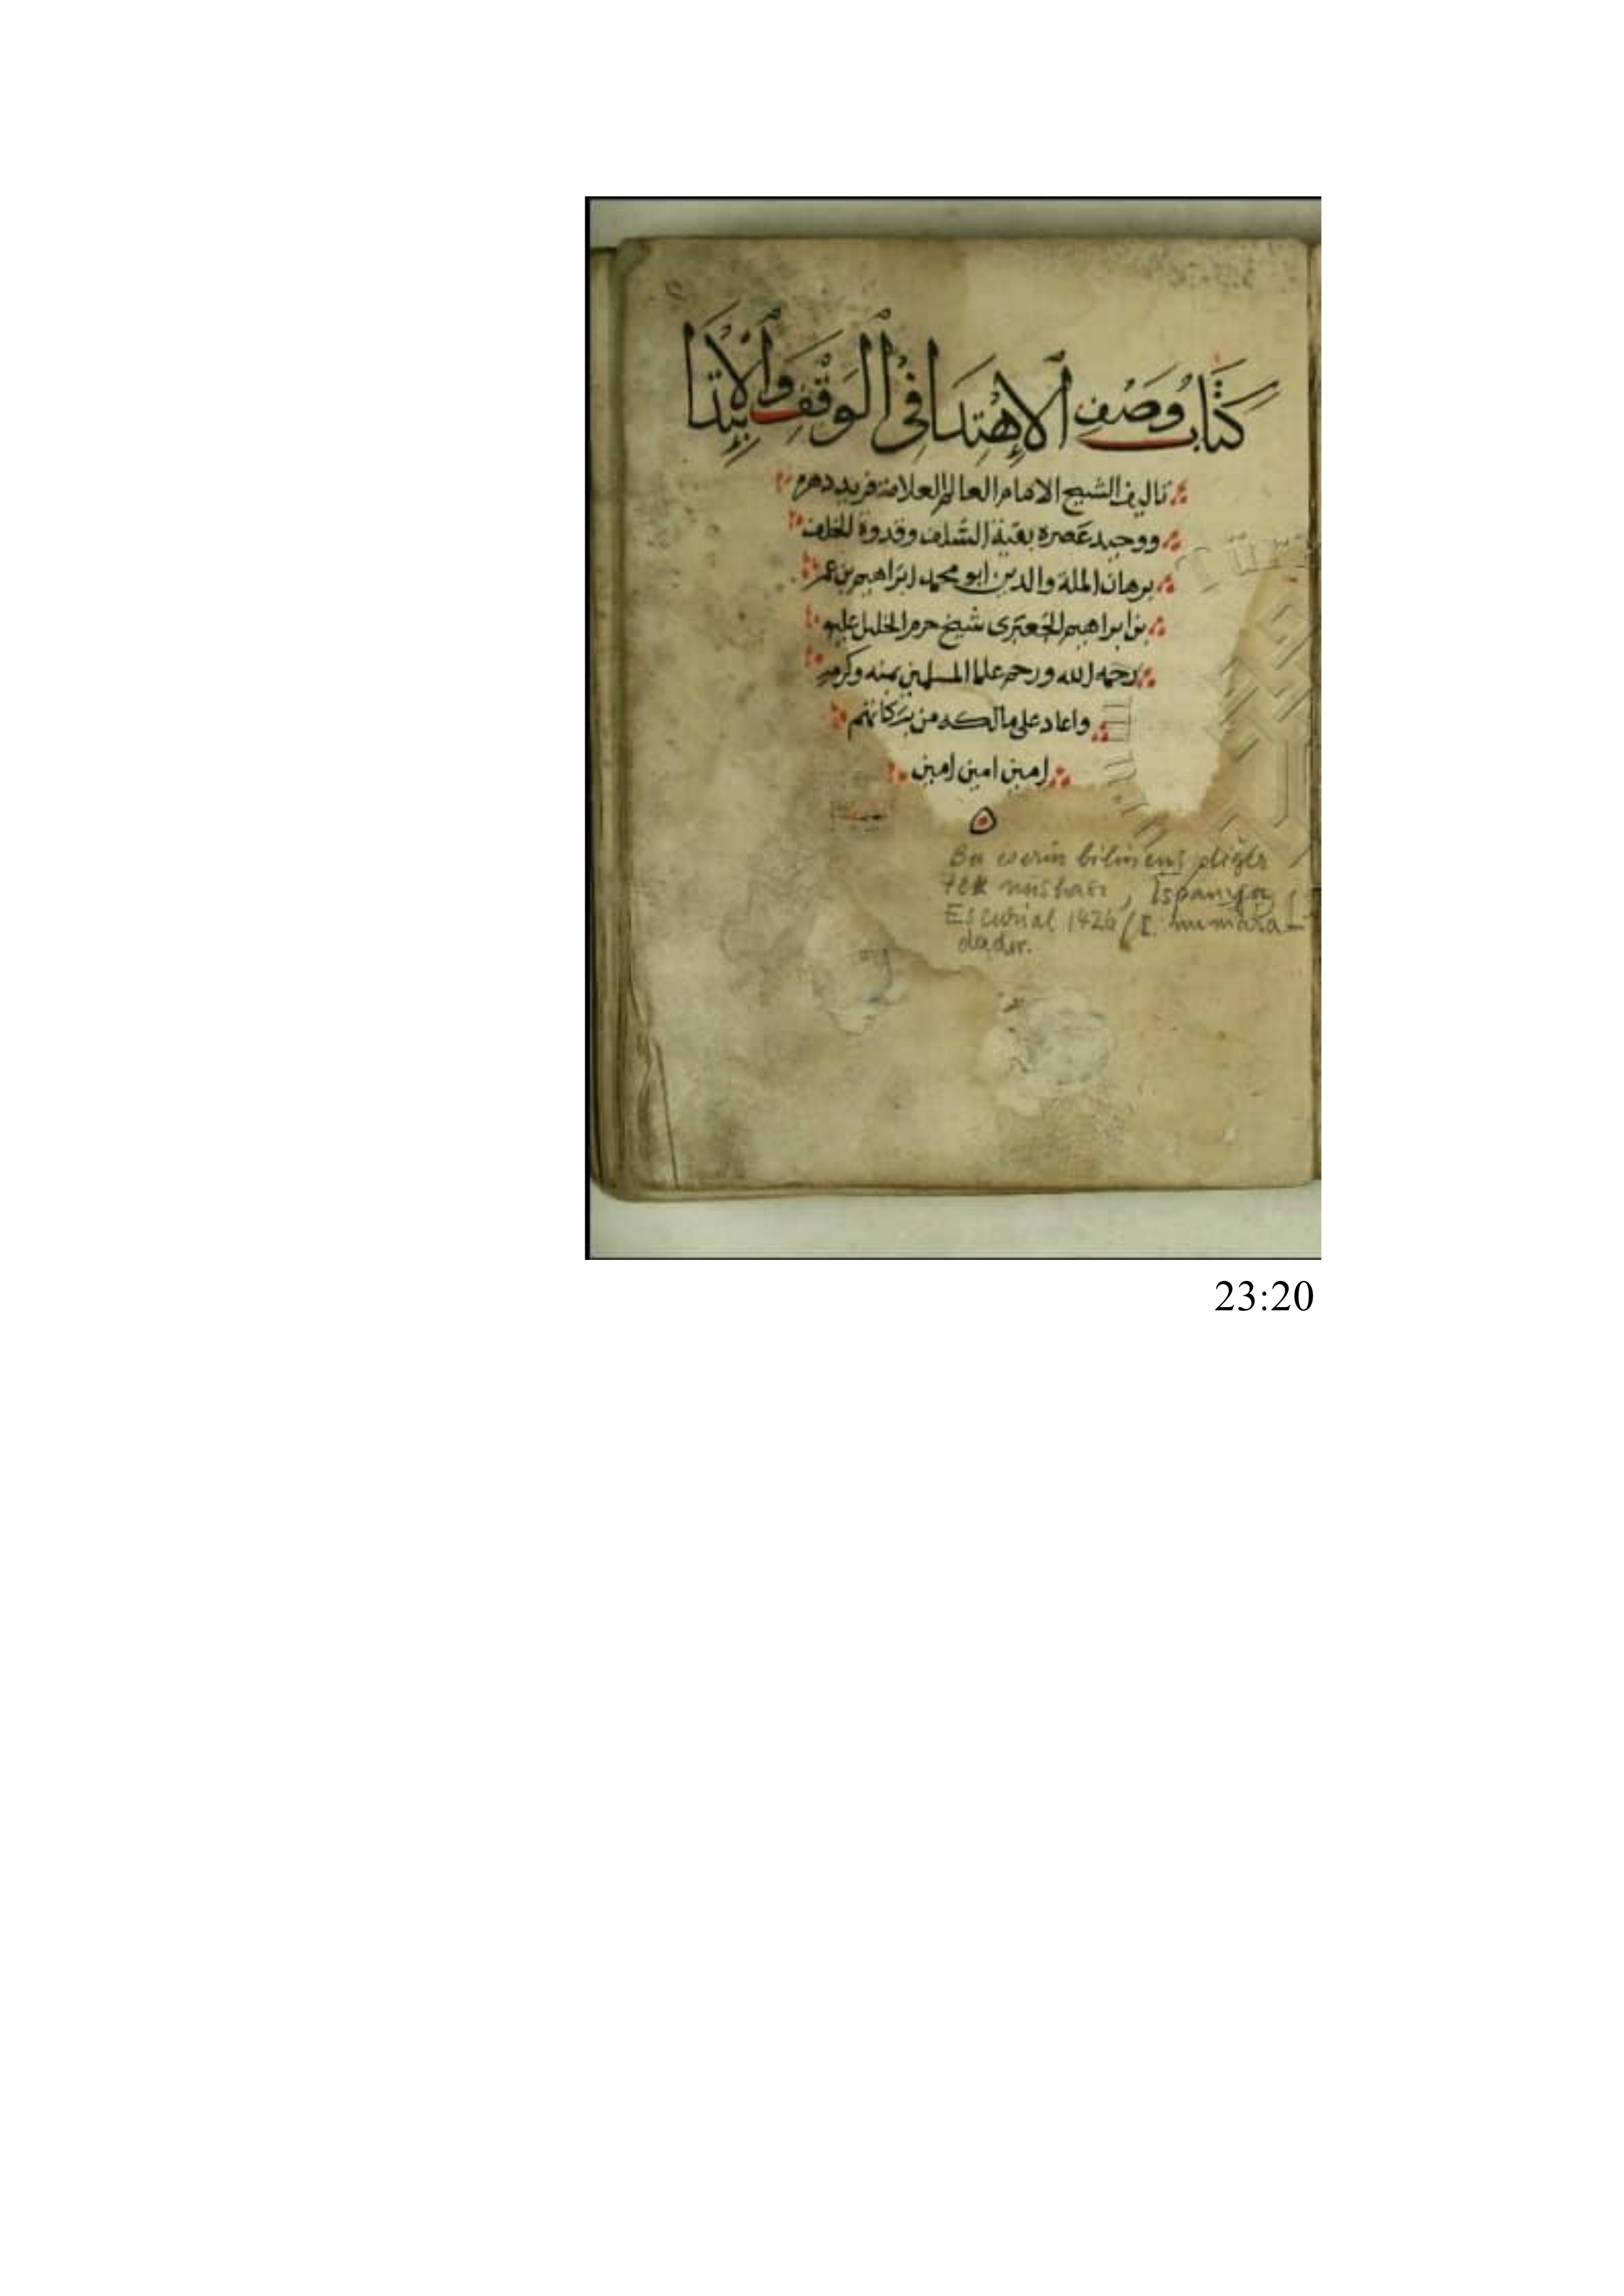 كتاب وصف الاهتدا في الوقف والابتدا
تاليف الشيخ الامام العالم العلامة فريد دهره
ووحيد عصره بقية السلف وقدوة الخلف
برهان الملة والدين ابو محمد ابراهيم بن عمر
بن ابراهيم الجعبرى شيخ حرم الخليل عليه
رحمه الله ورحم علما المسلمين بمنه وكرمه
واعاد على مالكه من بركاتهم
امين امين امين
Bu eserin bilinen diğer
tek nüshası, İspanya
Escurial 1426/I. numara-
dadır.
23:20